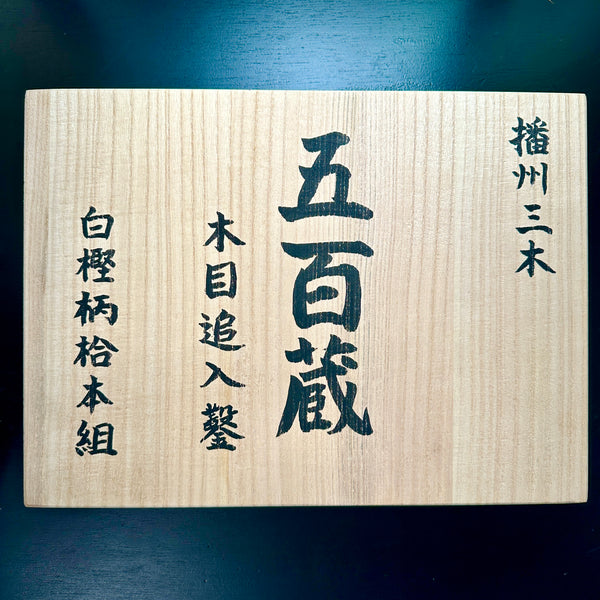 播州三木
五百蔵
木目追入鑿
白樫柄拾本組